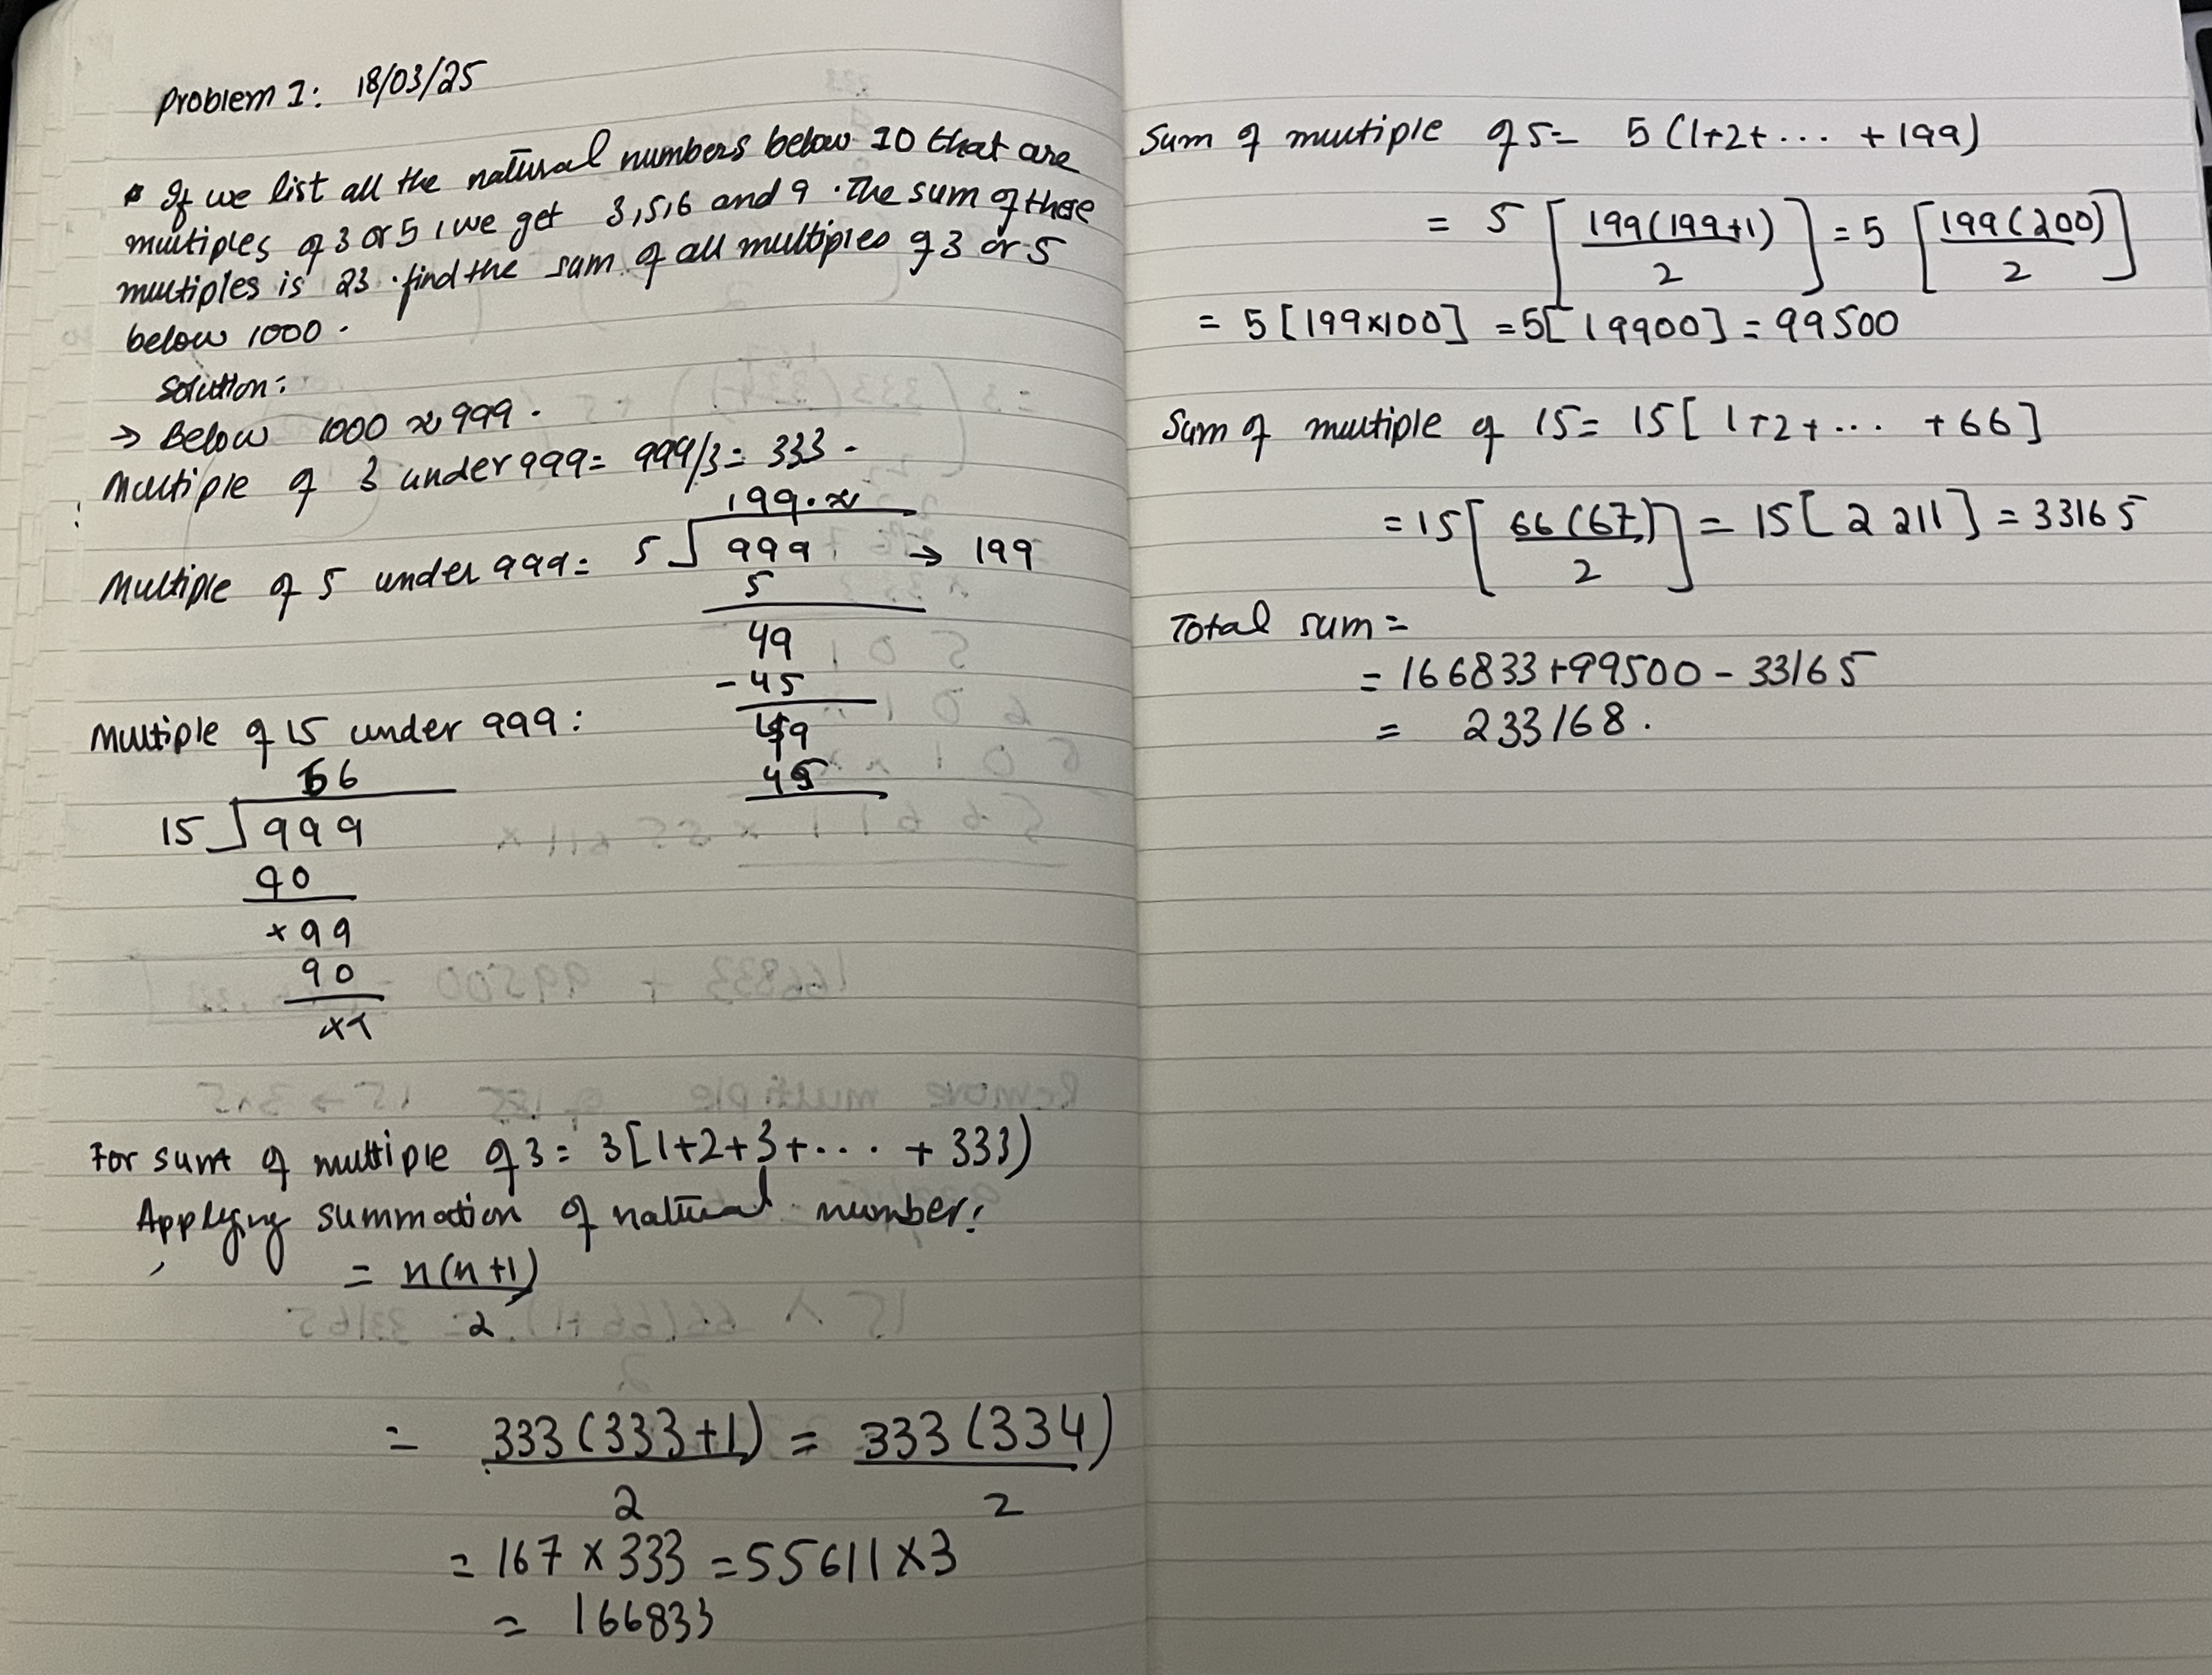 Problem 1: 18/03/25
* If we list all the natural numbers below 10 that are
multiples of 3 or 5, we get 3,5,6 and 9. The sum of these
multiples is 23. find the sum of all multiples of 3 or 5
below 1000.
Solution:
→ Below 1000 ≈ 999.
Multiple of 3 under 999 = 999/3 = 333.
199.x
Multiple of 5 under 999 = 5 999 → 199
5
49
-45
49
45
Multiple of 15 under 999:
66
15 999
90
x99
90
For sum of multiple of 3 = 3[1+2+3+... + 333)
Applying summation of natural number:
= n(n+1)
2
= 333(333+1) = 333(334)
2 2
= 167 x 333 = 55611 x 3
= 166833
Sum of multiple of 5 = 5(1+2+... +199)
= 5 [199(199+1)] = 5 [199(200)]
2 2
= 5[199x100] = 5[19900] = 99500
Sum of multiple of 15 = 15[1+2+... +66]
= 15[66(67)] = 15[2211] = 33165
2
Total sum =
= 166833+99500-33165
= 233168.